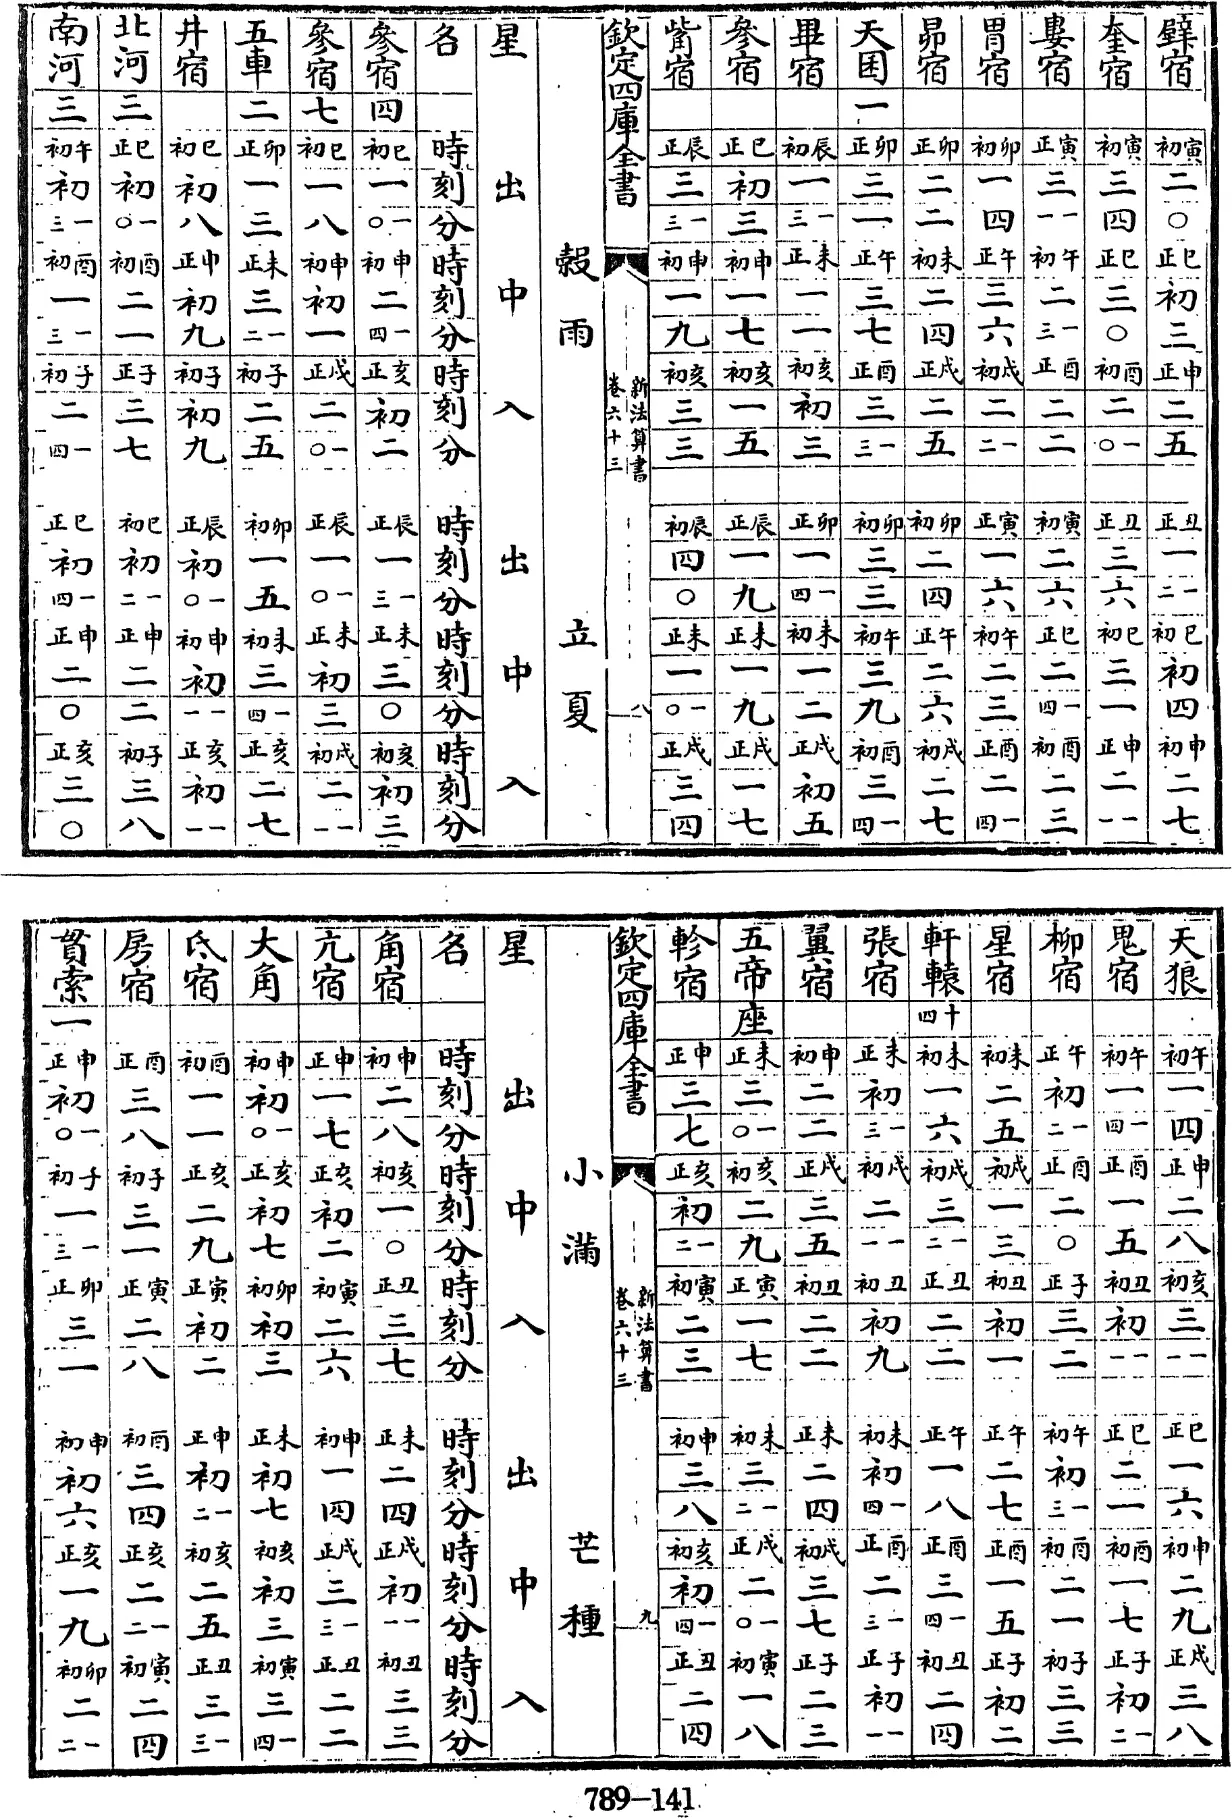 壁宿 寅初 二 〇 巳正 初 三 申正 二 五 丑正 一 一二 巳初 初 四 申初 二 七
奎宿 寅初 三 四 巳正 三 〇 酉初 二 一〇 丑正 三 六 巳初 三 一 申正 二 一一
婁宿 寅正 三 一一 午初 二 一三 酉正 二 二 寅初 二 六 巳正 二 一四 酉初 二 三
胃宿 卯初 一 四 午正 三 六 戌初 二 一二 寅正 一 六 午初 二 三 酉正 二 一四
昴宿 卯正 二 二 未初 二 四 戌正 二 五 卯初 二 四 午正 二 六 戌初 二 七
天囷 一 卯正 三 一 午正 三 七 酉正 三 一三 卯初 三 三 午初 三 九 酉初 三 一四
畢宿 辰初 一 一三 未正 一 一 亥初 初 三 卯正 一 一四 未初 一 二 戌正 初 五
參宿 巳正 初 三 申初 一 七 亥初 一 五 辰正 一 九 未正 一 九 戌正 一 七
觜宿 辰正 三 一三 申初 一 九 亥初 三 三 辰初 四 〇 未正 一 一〇 戌正 三 四
欽定四庫全書
新法算書
卷六十三
八
穀雨 立夏
星 出 中 入 出 中 入
名 時 刻 分 時 刻 分 時 刻 分 時 刻 分 時 刻 分 時 刻 分
參宿 四 巳初 一 一〇 申初 二 一四 亥正 初 二 辰正 一 一三 未正 三 〇 亥初 初 三
參宿 七 巳初 一 八 申初 初 一 戌正 二 一〇 辰正 一 一〇 未正 初 三 戌初 二 一一
五車 二 卯正 一 三 未正 三 一二 子初 二 五 卯初 一 五 未初 三 一四 亥正 二 七
井宿 巳初 初 八 申正 初 九 子初 初 九 辰正 初 一〇 申初 初 一一 亥正 初 一一
北河 三 巳正 初 一〇 酉初 二 一 子正 三 七 巳初 初 一二 申正 二 二 子初 三 八
南河 三 午初 初 一三 酉初 一 一三 子初 二 一四 巳正 初 一四 申正 二 〇 亥正 三 〇
天狼 午初 一 四 申正 二 八 亥初 三 一一 巳正 一 六 申初 二 九 戌正 三 八
鬼宿 午初 一 一四 酉正 一 五 丑初 初 一一 巳正 二 一 酉初 一 七 子正 初 一二
柳宿 午正 初 一二 酉正 二 〇 子正 三 二 午初 初 一三 酉初 二 一 子初 三 三
星宿 未初 二 五 戌初 一 三 丑初 初 一 午正 二 七 酉正 一 五 子正 初 二
軒轅 十四 未初 一 六 戌初 三 一二 丑正 二 二 午正 一 八 酉正 三 一四 丑初 二 四
張宿 未正 初 一三 戌初 二 一一 丑初 初 九 未初 初 一四 酉正 二 一三 子正 初 一一
翼宿 申初 二 二 戌正 三 五 丑初 二 二 未正 二 四 戌初 三 七 子正 二 三
五帝座 未正 三 一〇 亥初 二 九 寅正 一 七 未初 三 一二 戌正 二 一〇 寅初 一 八
軫宿 申正 三 七 亥正 初 一二 寅初 二 三 申初 三 八 亥初 初 一四 丑正 二 四
欽定四庫全書
新法算書
卷六十三
九
小滿 芒種
星 出 中 入 出 中 入
名 時 刻 分 時 刻 分 時 刻 分 時 刻 分 時 刻 分 時 刻 分
角宿 申初 二 八 亥初 一 〇 丑正 三 七 未正 二 四 戌正 初 一一 丑初 三 三
亢宿 申正 一 七 亥正 初 二 寅初 二 六 申初 一 四 戌正 三 一三 丑正 二 二
大角 申初 初 一〇 亥正 初 七 卯初 初 三 未正 初 七 亥初 初 三 寅初 三 一四
氐宿 酉初 一 一 亥正 二 九 寅正 初 二 申正 初 一二 亥初 二 五 丑正 三 一三
房宿 酉正 三 八 子初 三 一 寅正 二 八 酉初 三 四 亥正 二 一二 寅初 二 四
貫索 一 申正 初 一〇 子初 一 一三 卯正 三 一 申初 初 六 亥正 一 九 卯初 二 一二
789—141